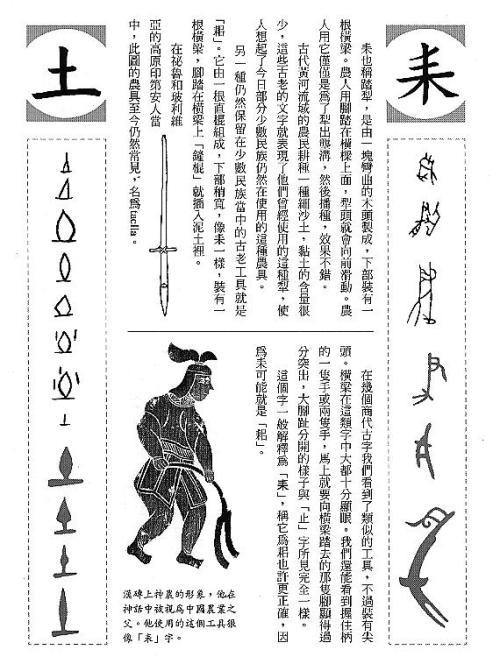 耒
耒也稱踏犁，是由一塊彎曲的木頭製成，下部裝有一
根橫梁。農人用腳踏在橫樑上面，犁頭就會向前滑動。農
人用它僅僅是爲了犁出壟溝，然後播種，效果不錯。
古代黃河流域的農民耕種一種細沙土，黏土的含量很
少，這些古老的文字就表現了他們曾經使用的這種犁，使
人想起了今日部分少數民族仍然在使用的這種農具。
另一種仍然保留在少數民族當中的古老工具就是
「耜」。它由一根直棍組成，下部稍寬，像耒一樣，裝有一
根橫梁，腳踏在橫梁上「鏟棍」就插入泥土裡。
在祕魯和玻利維
亞的高原印第安人當
中，此圖的農具至今仍然常見，名爲taclla。
在幾個商代古字我們看到了類似的工具，不過裝有尖
頭。橫梁在這類字中大都十分顯眼。我們還能看到握住柄
的一隻手或兩隻手，馬上就要向橫梁踏去的那隻腳顯得過
分突出，大腳趾分開的樣子與「止」字所見完全一樣。
這個字一般解釋爲「耒」，稱它爲耜也許更正確，因
爲耒可能就是「耜」。
漢磚上神農的形象，他在
神話中被視爲中國農業之
父。他使用的這個工具很
像「耒」字。
土